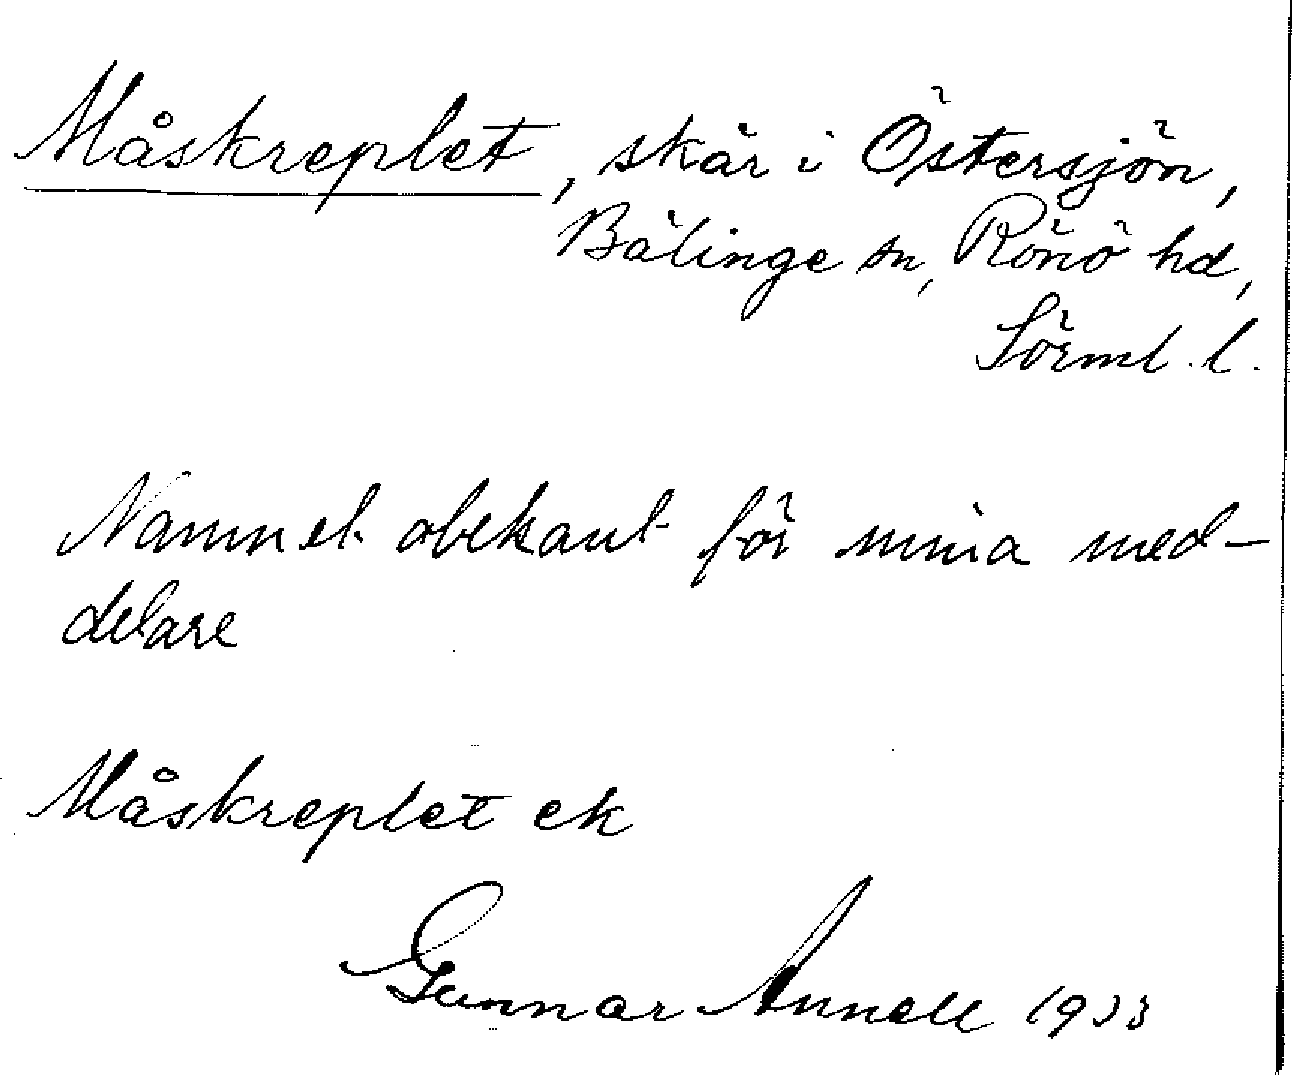 Måskreplet, skär i Östersjön,
Bälinge sn, Rönö hd,
Sörml. l.
Namnet obekant för mina med-
delare
Måskreplet ek
Gunnar Annell 1933